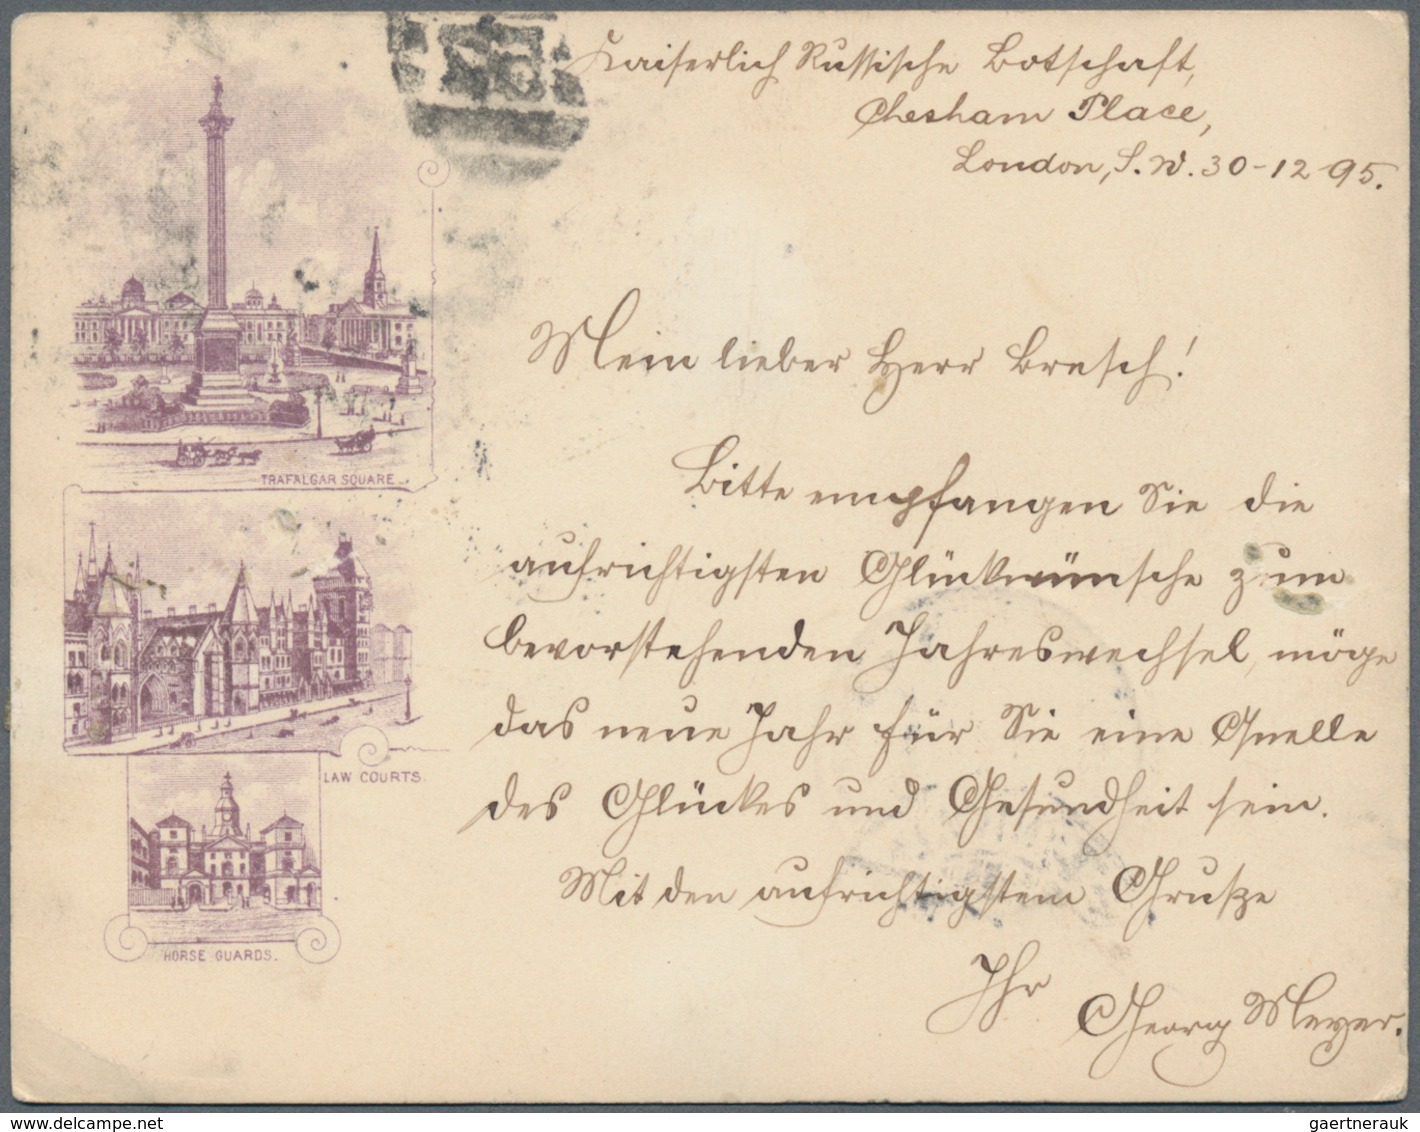 Kaiserlich Russische Botschaft,
Chesham Place,
London, S.W. 30-12 95.
Mein lieber Herr Bresch!
Bitte empfangen Sie die
aufrichtigsten Glückwünsche zum
bevorstehenden Jahreswechsel, möge
das neue Jahr für Sie eine Quelle
des Glückes und Gesundheit sein.
Mit den aufrichtigstem Grusze
Ihr
Georg Meyer.
TRAFALGAR SQUARE.
LAW COURTS.
HORSE GUARDS.
www.delcampe.net
gaertnerauk